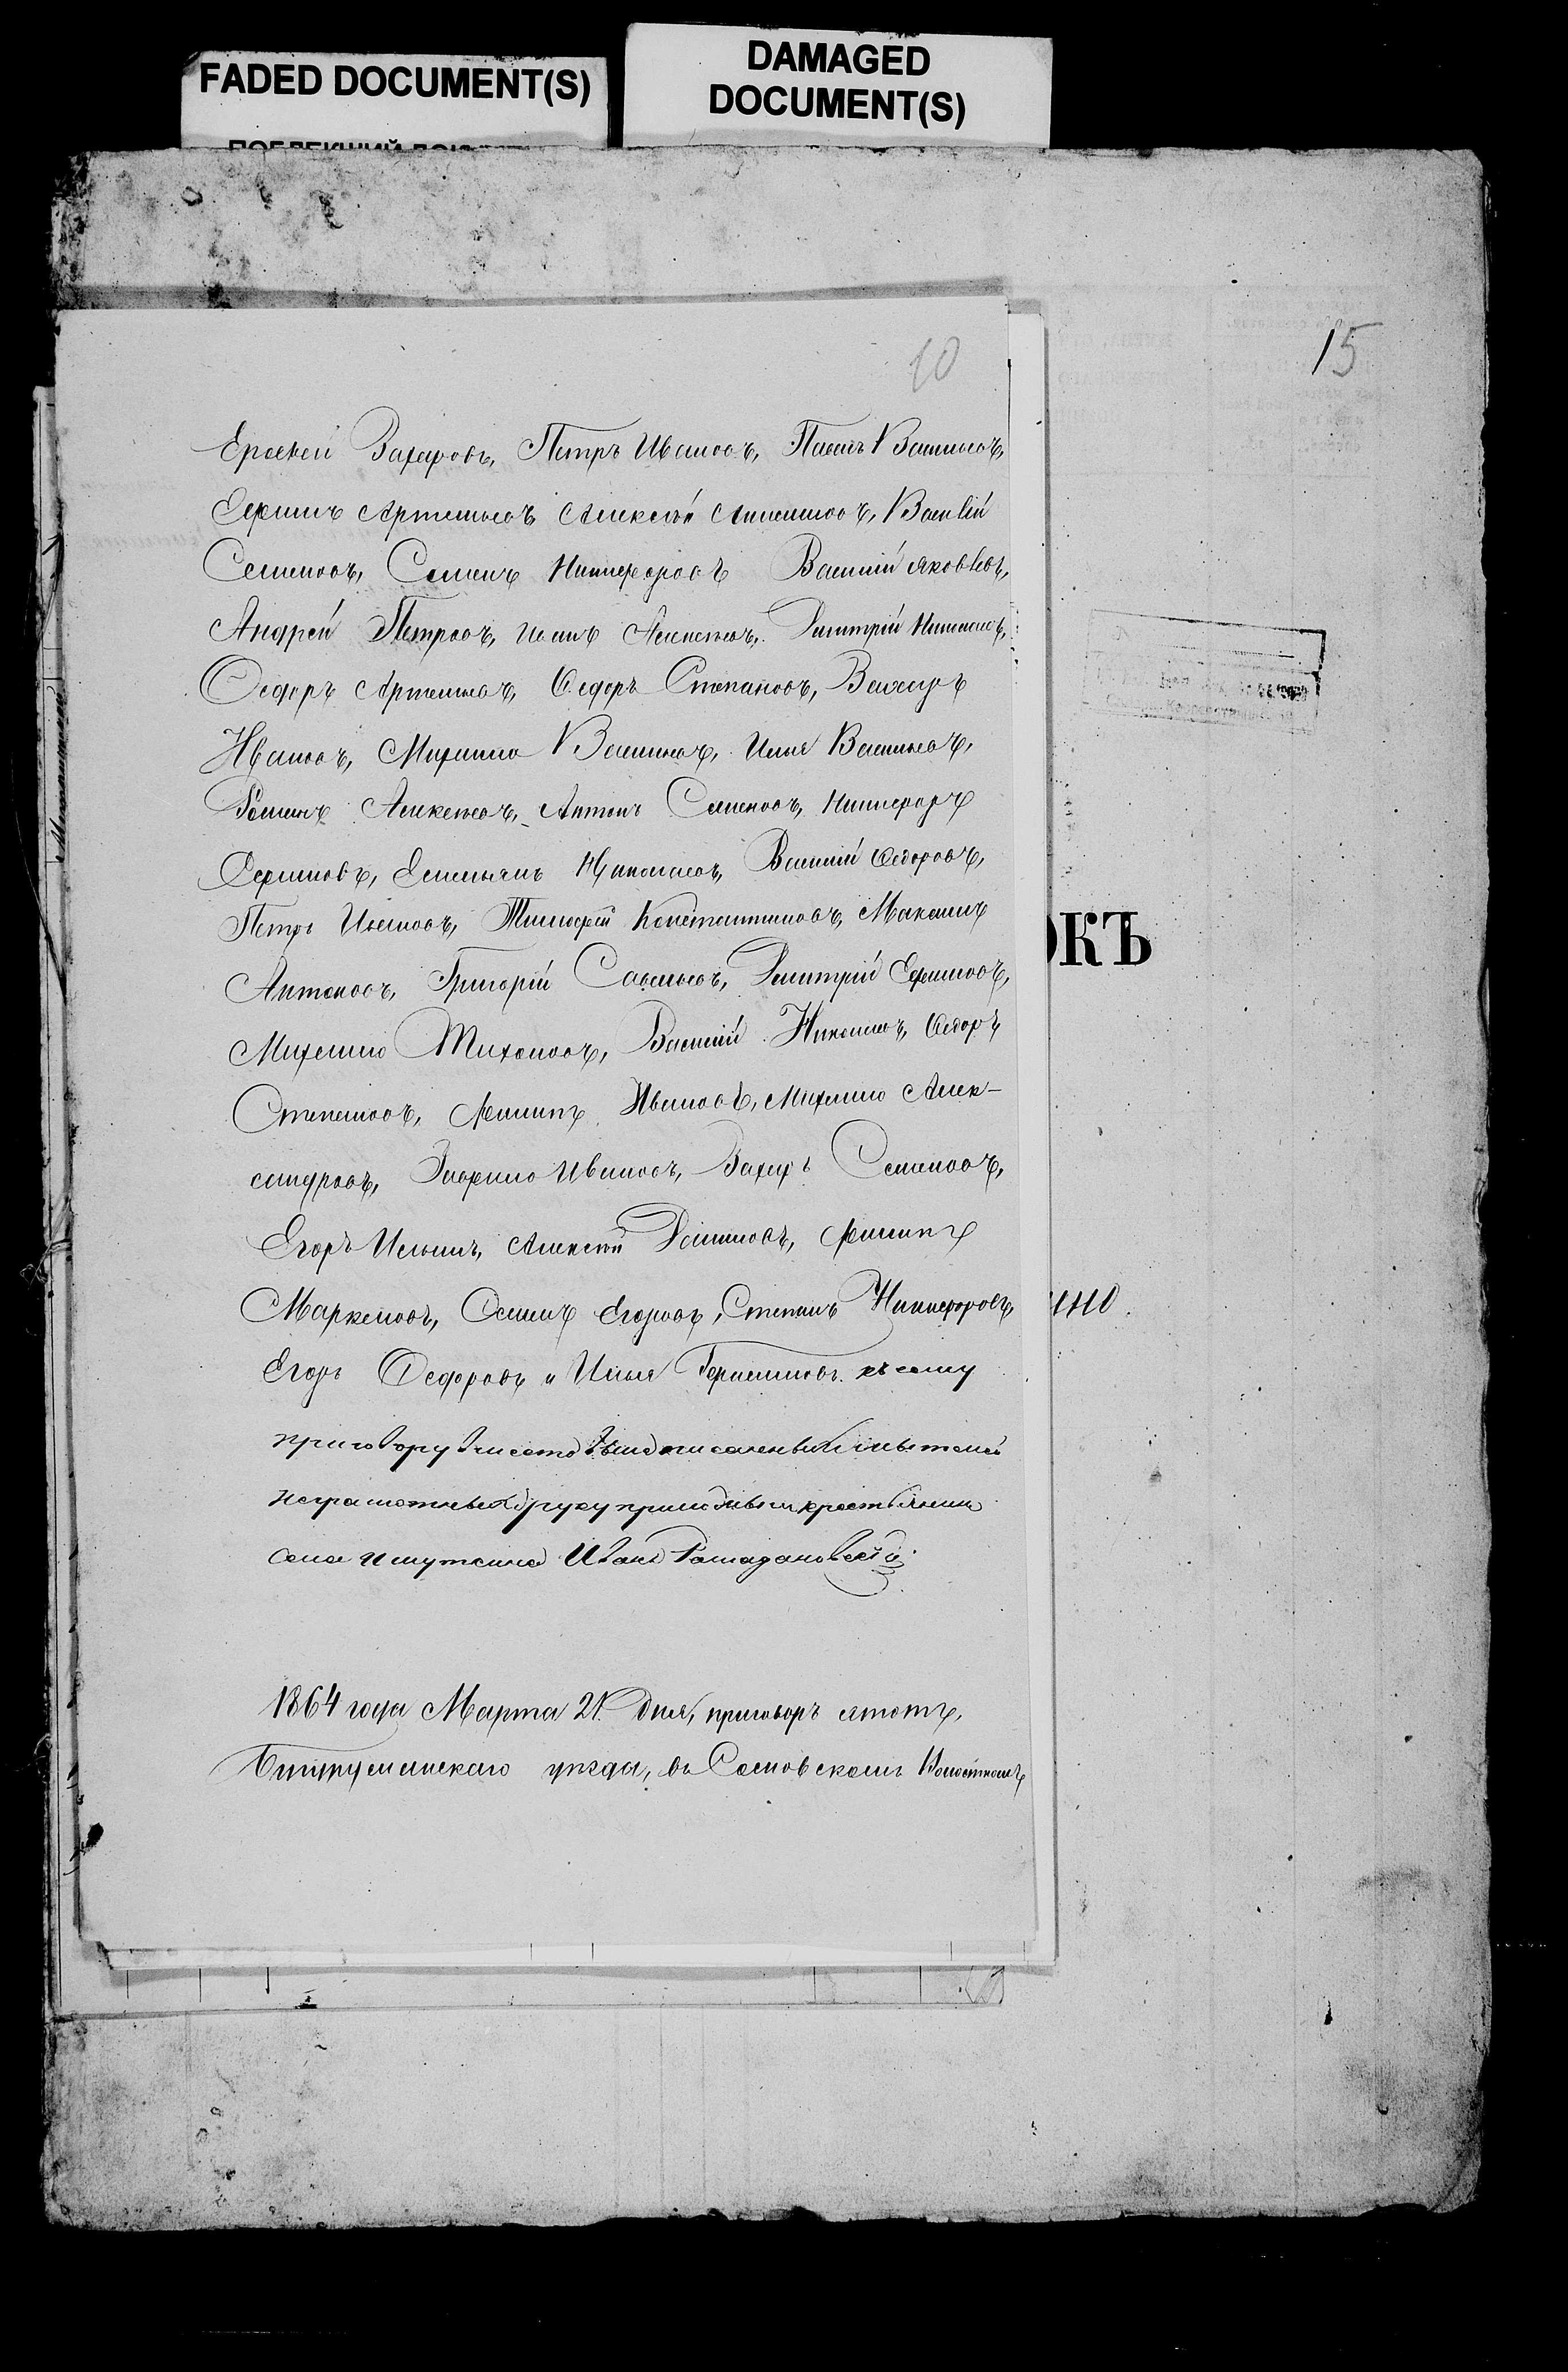 FADED DOCUMENT(S)
DAMAGED
DOCUMENT(S)
10
15
Ерофей Захаровъ, Петръ Ивановъ, Павелъ Васильевъ,
Ефимъ Артемьевъ Алексѣй Василій
Семеновъ, Семенъ Никифоровъ Василій Яковлевъ,
Андрей Петровъ, Иванъ Алексѣевъ, Димитрій Николаевъ,
Ѳедоръ Артемьевъ, Ѳедоръ Степановъ, Захаръ
Ивановъ, Михаило Васильевъ, Илья Васильевъ,
Романъ Алексѣевъ, Антонъ Семеновъ, Никифоръ
Ефимовъ, Емельянъ Николаевъ, Василій Ѳедоровъ,
Петръ Ивановъ, Тимофей Константиновъ, Максимъ
Антоновъ, Григорій Савельевъ, Димитрій Ефимовъ,
Михаило Тихоновъ, Василій Ѳедоръ
Степановъ, Филипъ Ивановъ, Михаило Алек-
сандровъ, Гаврило Ивановъ, Захаръ Семеновъ,
Егоръ Ильинъ, Алексѣй Филипъ
Маркеловъ, Осипъ Егоровъ, Степанъ Никифоровъ,
Егоръ Ѳедоровъ и Илья къ сему
приговору вмѣсто вышеписанныхъ
неграмотныхъ руку приложилъ крестьянинъ
села Иванъ
1864 года Марта 21 дня, приговоръ этотъ,
Бугурусланскаго уѣзда, въ Сосновскомъ Волостномъ
ОКЪ